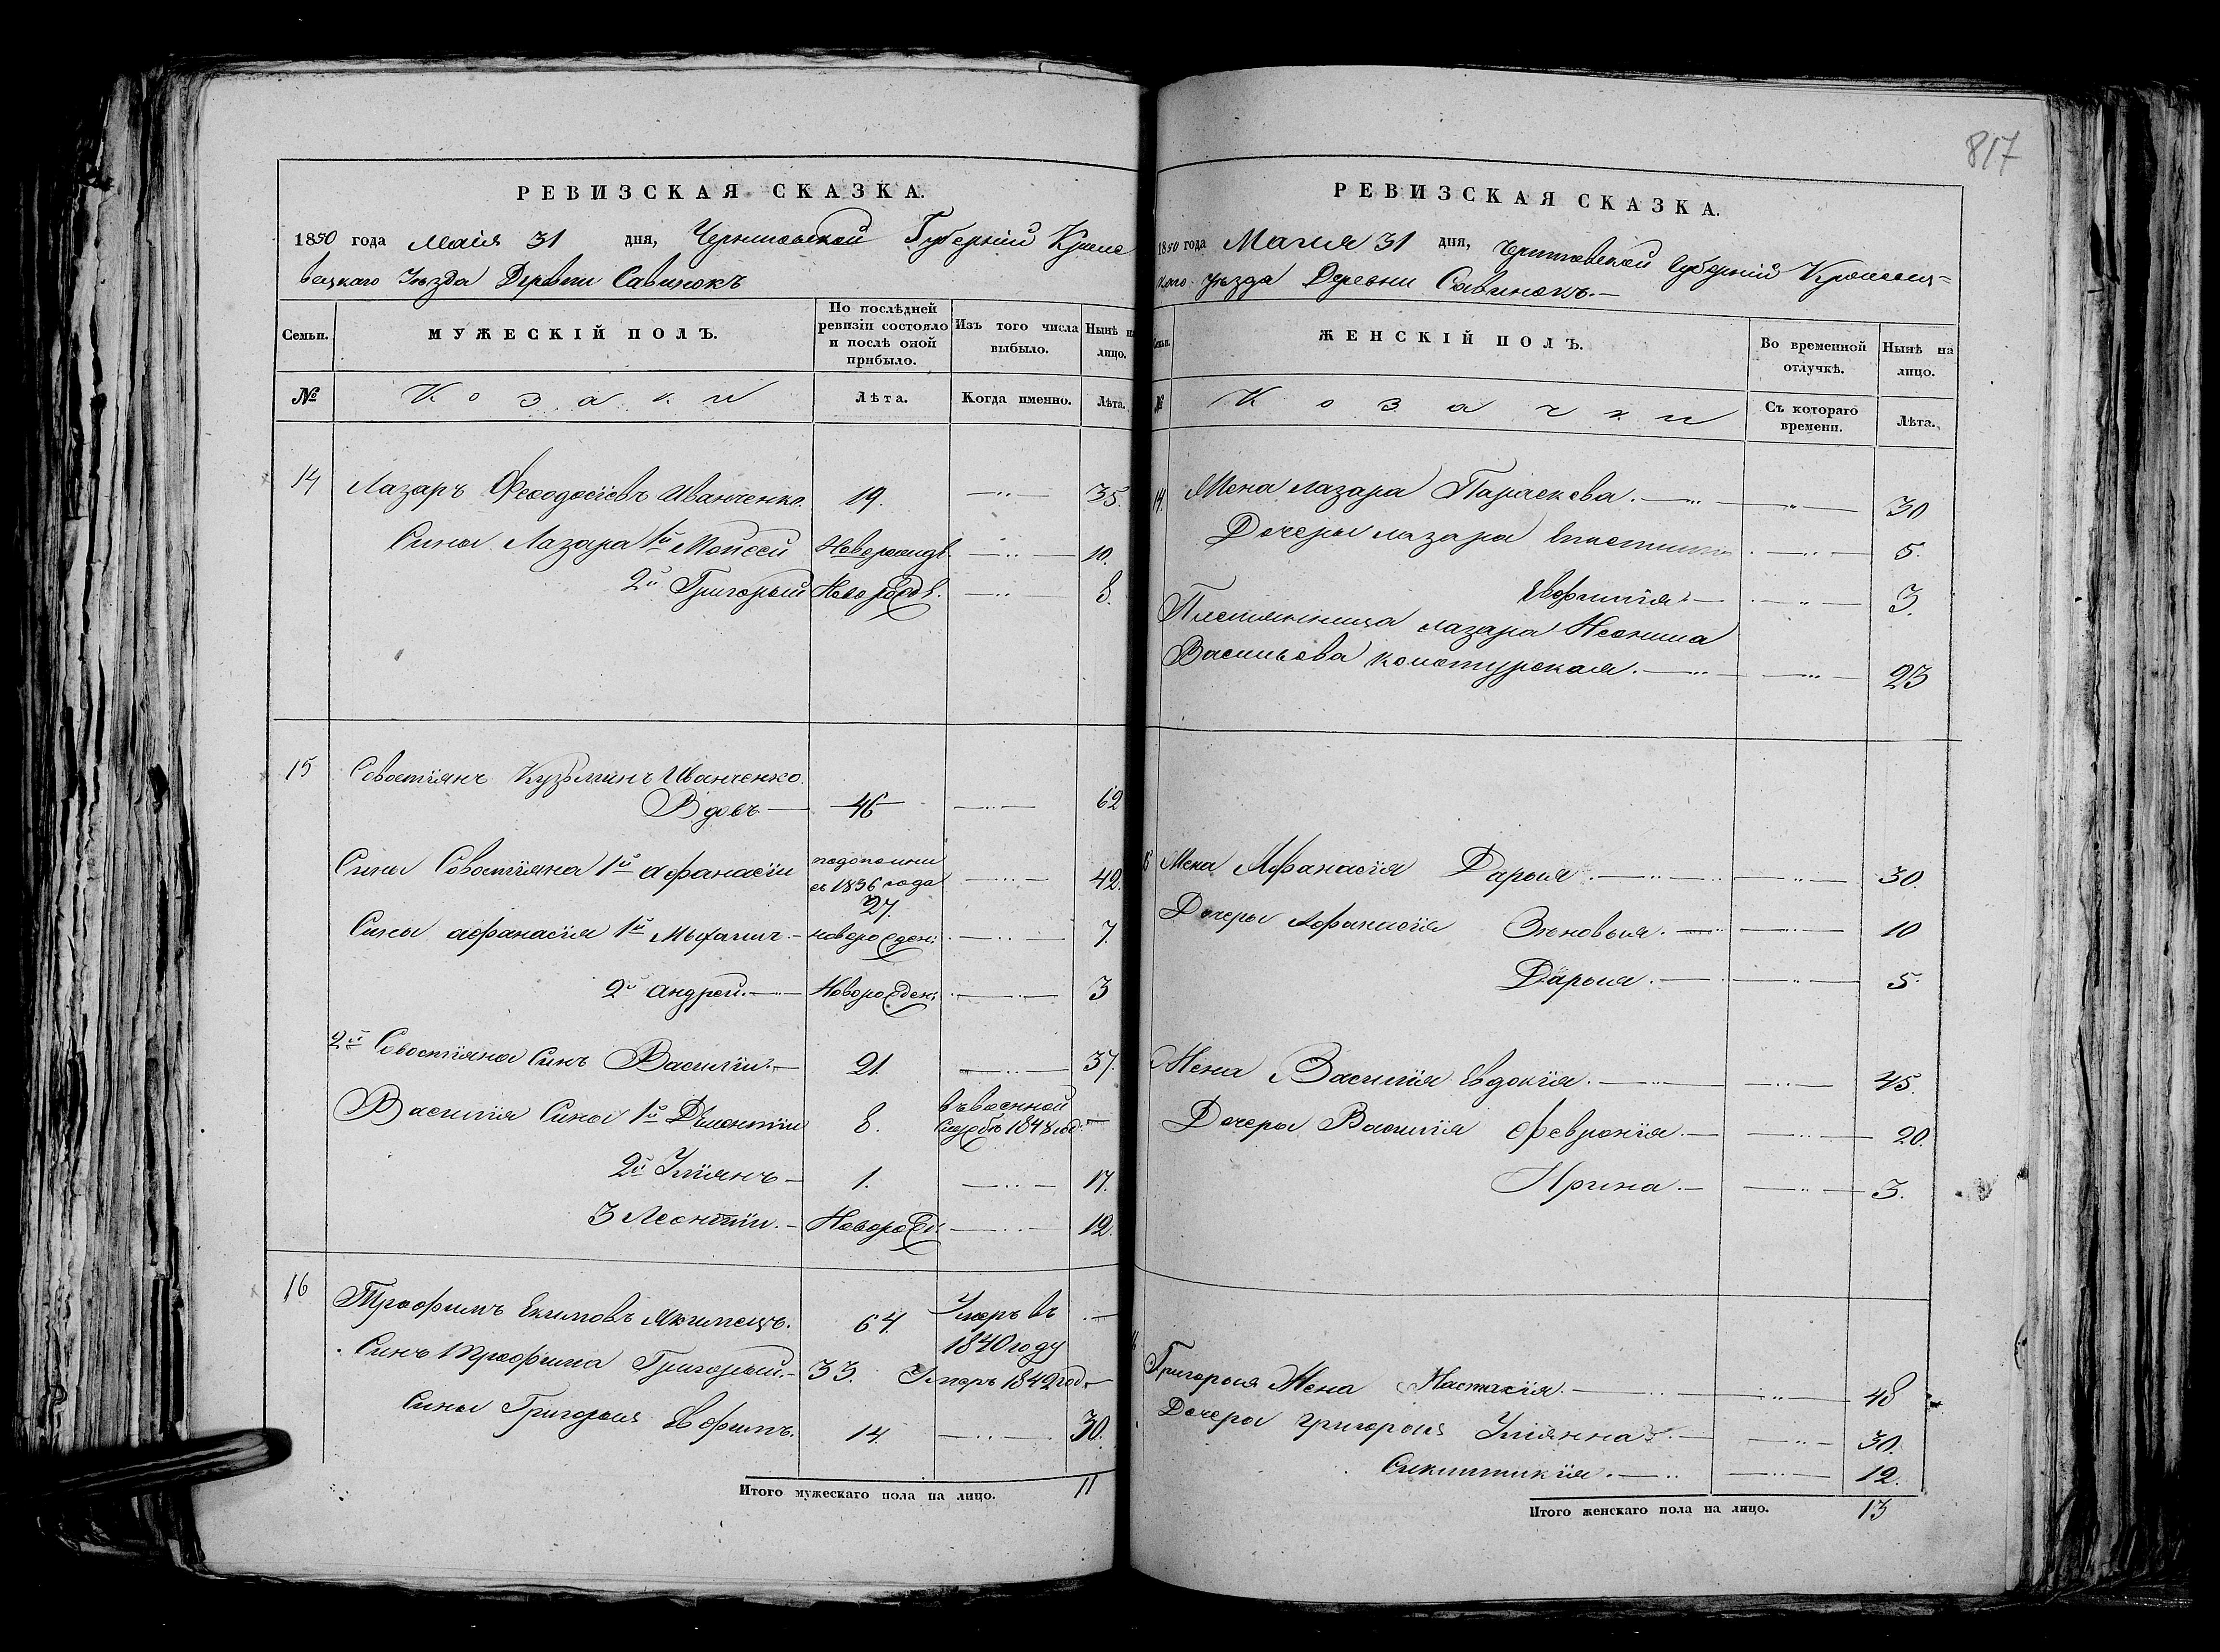 817
РЕВИЗСКАЯ СКАЗКА.
1850 года Маія 31 дня, Черниговской Губерніи Кроле
вецкаго Уѣзда Деревни Савинокъ
Семьи. МУЖЕСКІЙ ПОЛЪ. По послѣдней ревизіи состояло и послѣ оной прибыло. Изъ того числа выбыло. Нынѣ на лицо.
№ Козаки Лѣта. Когда именно. Лѣта.
14 Лазаръ Феодосіевъ Иванченко. 19. 35.
Сины Лазара 1й Моисей Новорожд. 10.
2й Григорый Новорожд. 8.
15 Совостіянъ Кузьминъ Иванченко.
Вдовъ 46 62
Сины Совостіяна 1й Афанасіи
съ 1836 года 42.
27.
Сины Афанасія 1й Мыхаилъ новорожден: 7.
2й Андрей. Новорожден: 3
2й Совостіяна Синъ Василіи. 21. 37.
Василія Сины 1й Дѣментіи 8. въ военной
службѣ 1848 год:
2й Уліянъ 1. 17.
3 Леонтіи. Новорожд: 12.
16 Трофимъ Екимовъ Якимецъ. 64. Умеръ въ
1840 году
Синъ Трофима Григорый. 33. Умеръ 1842 год.
Сины Григорыя Евфимъ. 14. 30.
Итого мужескаго пола на лицо. 11
РЕВИЗСКАЯ СКАЗКА.
1850 года Магия 31 дня, Черниговской Губерніи Кролевец=
каго Уѣзда Деревни Савинокъ.
Семьи. ЖЕНСКІЙ ПОЛЪ. Во временной отлучкѣ. Нынѣ на лицо.
№ Козачки Съ котораго времени. Лѣта.
14. Жена Лазара Параскева. 30
Дочеры Лазара 5.
Евфимія 3.
Племянница Лазара Неонила
Васильева 23
15 Жена Афанасія Дарыя. 30.
Дочеры Афанасія Зѣновыя. 10
Дарыя. 5.
Жена Василія Евдокія. 45.
Дочеры Василія Февронія. 20.
Ирина. 3.
Григорыя Жена Настасія. 48
Дочеры Григорыя Уліянна. 30.
12.
Итого женскаго пола на лицо. 13